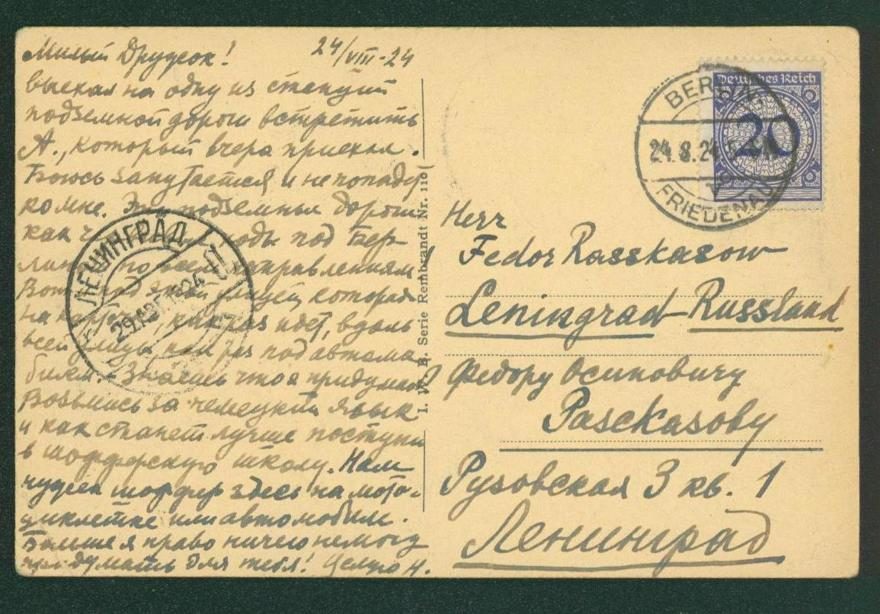 Милый Дружок! 24/VIII-24
выехал на одну из станций
подземной дороги встретить
А., который вчера приехал.
Боюсь запутается и не попадет
ко мне. Эти подземныя дороги
как под Бер-
по всем направлениям
улицей, которая
на карточке, как раз идет, вдоль
всей улицы как раз под автомо
билем. Знаешь что я придумал?
Возьмись за немецкий язык
и как станет лучше поступи
в шофферскую школу. Нам
нужен шоффер здесь на мото-
циклетке или автомобиле.
Больше я право ничего не могу
придумать для тебя! Целую Н.
I. W. B. Serie Rembrandt Nr. 110
ЛЕНИНГРАД
Deutsches Reich
20
BERLIN
24.8.24
FRIEDENAU
Herr
Fedor Rasskasow
Leningrad-Russland
Федору Осиповичу
Разсказову
Рузовская 3 кв. 1
Ленинград